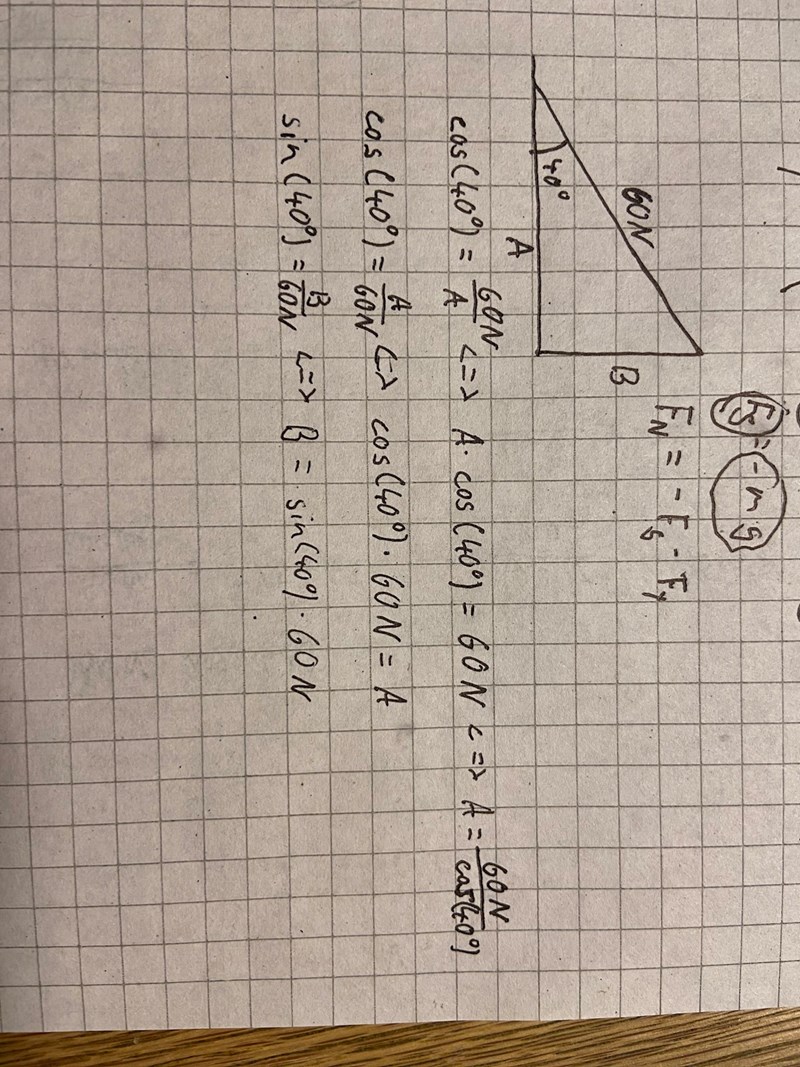 Fg = -mg
F_N = -F_G - F_y
60N
B
40°
A
cos(40°) = 60N/A <=> A · cos(40°) = 60N <=> A = 60N/cos(40°)
cos(40°) = A/60N <=> cos(40°) · 60N = A
sin(40°) = B/60N <=> B = sin(40°) · 60N